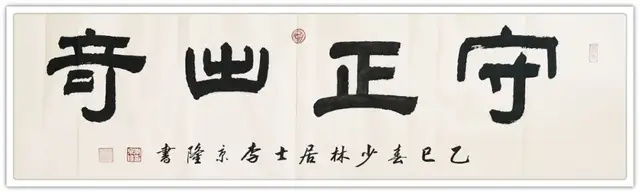 守正出奇
乙巳春少林居士李京隆書